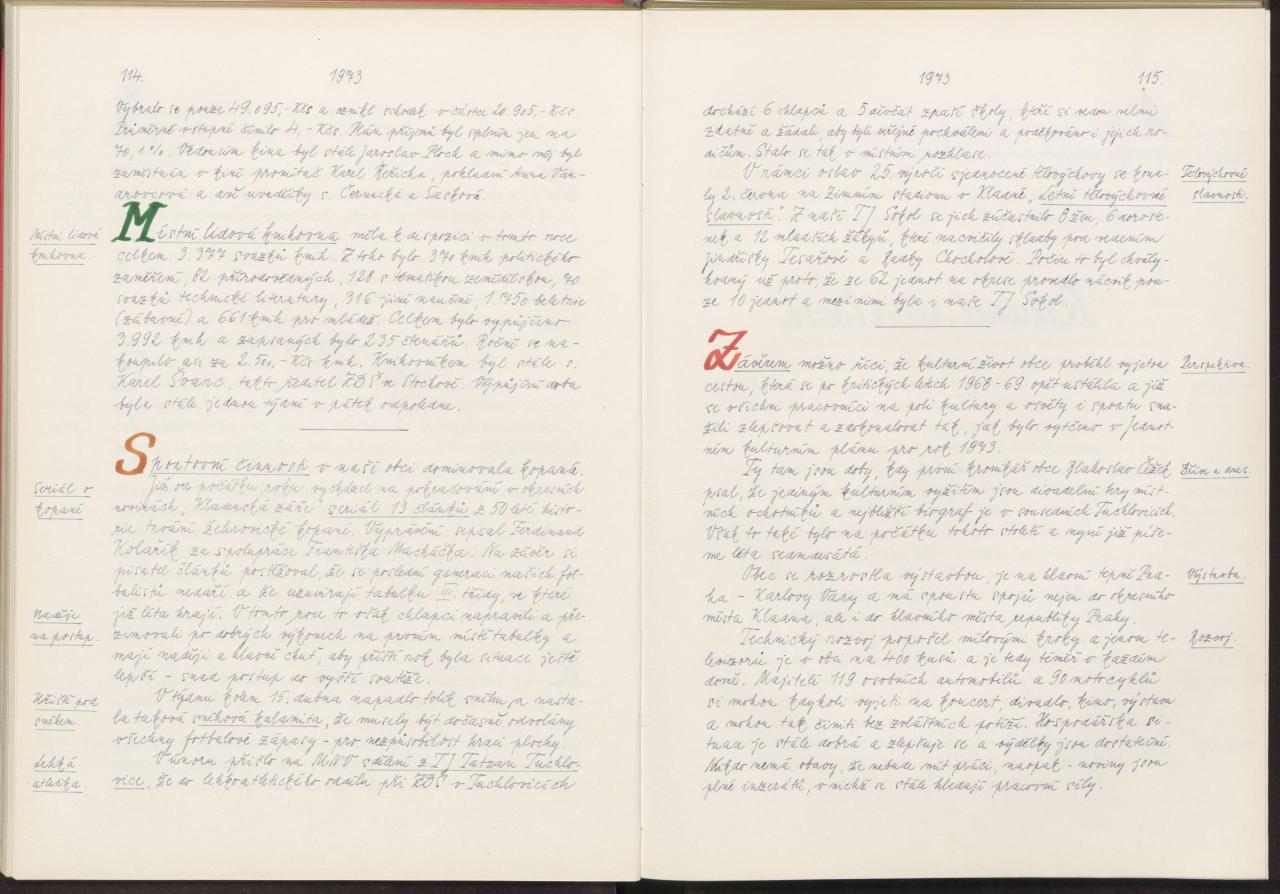 114.
1973
Vybralo se pouze 49.095,- Kčs a vznikl schodek v částce 20.905,- Kčs.
Průměrné vstupné činilo 4,- Kčs. Plán příjmů byl splněn jen na
70,1%. Vedoucím kina byl stále Jaroslav Ploch a mimo něj byl
zaměstnán v kině promítač Karel Keřicha, pokladní Anna Van-
drovcová a dvě uvaděčky s. Černická a Sasková.
Místní lidová
knihovna.
Místní lidová knihovna měla k dispozici v tomto roce
celkem 3.377 svazků knih. Z toho bylo 370 knih politického
zaměření, 82 přírodovědných, 128 s tématikou zemědělskou, 70
svazků technické literatury, 316 jiné naučné, 1.750 beletrie
(zábavné) a 661 knih pro mládež. Celkem bylo vypůjčeno
3.992 knih a zapsaných bylo 235 čtenářů. Ročně se na-
koupilo asi za 2.500,- Kčs knih. Knihovníkem byl stále s.
Karel Švarc, takto ředitel ZDŠ ve Stochově. Výpůjční doba
byla stále jednou týdně v pátek odpoledne.
Sportovní činnosti v naší obci dominovala kopaná.
Seriál o
kopané
Již od počátku roku vycházel na pokračování v okresních
novinách „Kladenská záře" seriál 13 článků z 50 leté histo-
rie trvání žehrovické kopané. Vyprávění sepsal Ferdinand
Kolařík za spolupráce Františka Macháčka. Na závěr si
pisatel článků postěžoval, že se poslední generaci našich fot-
balistů nedaří a že uzavírají tabulku III. třídy, ve které
Naděje
na postup.
již léta hrají. V tomto roce to však chlapci napravili a pře-
zimovali po dobrých výkonech na prvním místě tabulky a
mají naději a hlavně chuť, aby příští rok byla situace ještě
lepší - snad postup do vyšší soutěže.
Hřiště pod
sněhem.
V týdnu kolem 15. dubna napadlo tolik sněhu a nasta-
la taková sněhová kalamita, že musely být dočasně odvolány
všechny fotbalové zápasy - pro nezpůsobilost hrací plochy.
Lehká
atletika.
V únoru přišlo na MNV sdělení z TJ Tatran Tuchlo-
vice, že do lehkoatletického oddílu při ZDŠ v Tuchlovicích
1973
115.
dochází 6 chlapců a 5 děvčat z naší školy, kteří si vedou velmi
zdatně a žádali, aby byli veřejně pochváleni a poděkováno i jejich ro-
dičům. Stalo se tak v místním rozhlase.
Tělovýchovné
slavnosti.
V rámci oslav 25. výročí sjednocené tělovýchovy se kona-
ly 2. června na Zimním stadionu v Kladně „Letní tělovýchovné
slavnosti". Z naší TJ Sokol se jich zúčastnilo 8 žen, 6 doroste-
nek a 12 mladších žákyň, které nacvičily skladby pod vedením
Jindřišky Tesařové a Radky Chocholové. Počin to byl chvály-
hodný už proto, že ze 62 jednot na okrese provedlo nácvik pou-
ze 10 jednot a mezi nimi byla i naše TJ Sokol.
Perspektiva.
Závěrem možno říci, že kulturní život obce proběhl vyjetou
cestou, která se po kritických letech 1968-69 opět ustálila a již
se všichni pracovníci na poli kultury a osvěty i sportu sna-
žili zlepšovat a zdokonalovat tak, jak bylo vytčeno v Jednot-
ném kulturním plánu pro rok 1973.
Dříve a dnes.
Ty tam jsou doby, kdy první kronikář obce Vlahoslav Čížek
psal, že jediným kulturním vyžitím jsou divadelní hry míst-
ních ochotníků a nejbližší biograf je v sousedních Tuchlovicích.
Však to také bylo na počátku tohoto století a nyní již píše-
me léta sedmdesátá.
Výstavba.
Obec se rozrostla výstavbou, je na hlavní tepně Pra-
ha - Karlovy Vary a má spoustu spojů nejen do okresního
města Kladna, ale i do hlavního města republiky Prahy.
Rozvoj.
Technický rozvoj popošel mílovými kroky a jenom te-
levizorů je v obci na 400 kusů a je tedy téměř v každém
domě. Majitelé 119 osobních automobilů a 90 motocyklů
si mohou kdykoli vyjeti na koncert, divadlo, kino, výstavu
a mohou tak činiti bez zvláštních potíží. Hospodářská si-
tuace je stále dobrá a zlepšuje se a výdělky jsou dostatečné.
Nikdo nemá obavy, že nebude mít práci, naopak - noviny jsou
plné inzerátů, v nichž se stále hledají pracovní síly.